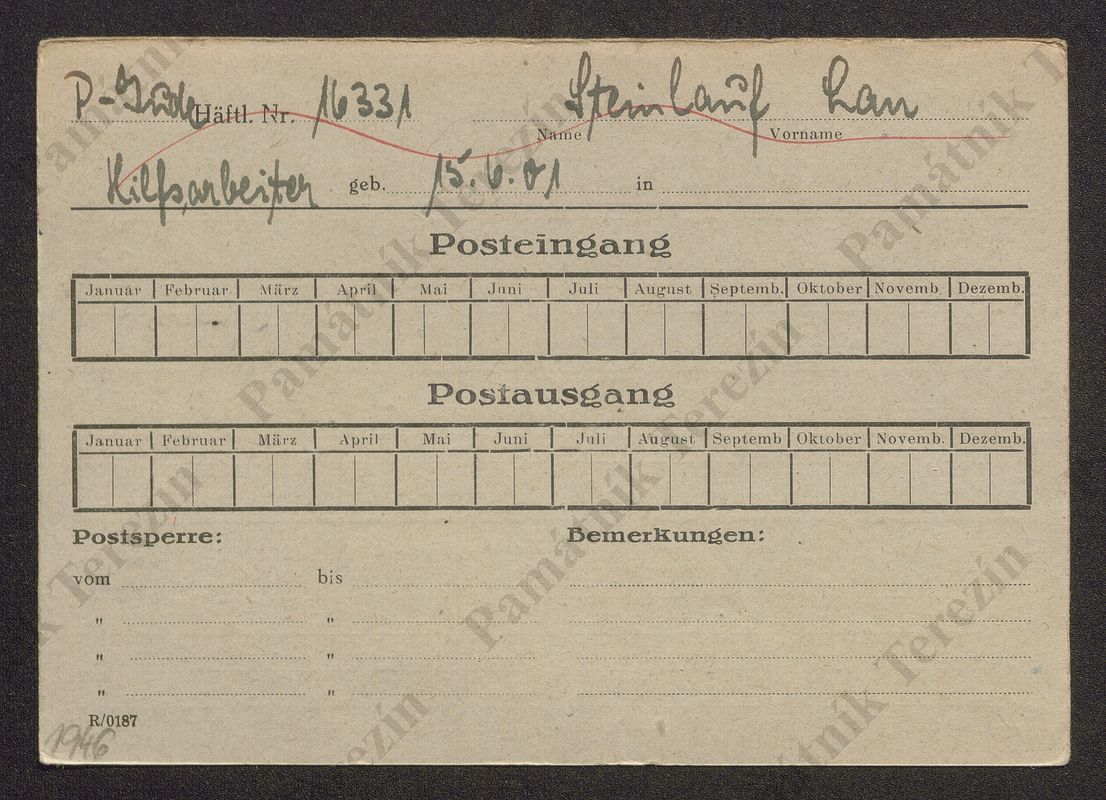 P-Jude Häftl. Nr. 16331 Steinlauf Lan
Name Vorname
Hilfsarbeiter geb. 15.6.01 in
Posteingang
Januar Februar März April Mai Juni Juli August Septemb. Oktober Novemb. Dezemb.
Postausgang
Januar Februar März April Mai Juni Juli August Septemb Oktober Novemb. Dezemb.
Postsperre: Bemerkungen:
vom bis
" "
" "
" "
R/0187
1946
Památník Terezín